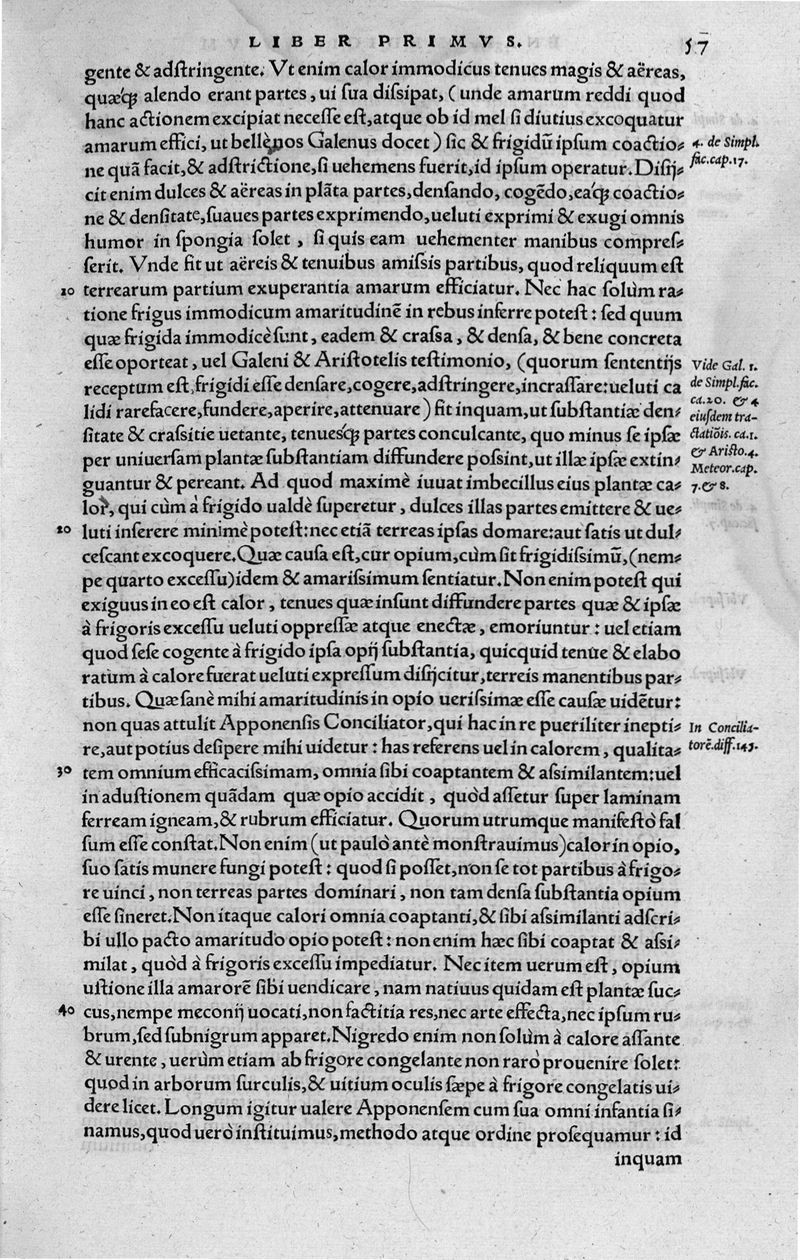 LIBER PRIMVS. 57
gente & adstringente. Vt enim calor immodicus tenues magis & aëreas,
quæq́; alendo erant partes, ui sua dissipat, (unde amarum reddi quod
hanc actionem excipiat necesse est, atque ob id mel si diutius excoquatur
amarum effici, ut bellè nos Galenus docet) sic & frigidũ ipsum coactio⸗
ne quã facit, & adstrictione, si uehemens fuerit, id ipsum operatur. Disij⸗
cit enim dulces & aëreas in plãta partes, densando, cogẽdo, eaq́; coactio⸗
ne & densitate, suaues partes exprimendo, ueluti exprimi & exugi omnis
humor in spongia solet, si quis eam uehementer manibus compres⸗
serit. Vnde fit ut aëreis & tenuibus amissis partibus, quod reliquum est
10 terrearum partium exuperantia amarum efficiatur. Nec hac solùm ra⸗
tione frigus immodicum amaritudinẽ in rebus inferre potest: sed quum
quæ frigida immodicè sunt, eadem & crassa, & densa, & bene concreta
esse oporteat, uel Galeni & Aristotelis testimonio, (quorum sententijs
receptum est, frigidi esse densare, cogere, adstringere, incrassare: ueluti ca
lidi rarefacere, fundere, aperire, attenuare) fit inquam, ut substantiæ den⸗
sitate & crassitie uetante, tenuesq́; partes conculcante, quo minus se ipsæ
per uniuersam plantæ substantiam diffundere possint, ut illæ ipsæ extin⸗
guantur & pereant. Ad quod maximè iuuat imbecillus eius plantæ ca⸗
lor, qui cùm à frigido ualdè superetur, dulces illas partes emittere & ue⸗
20 luti inserere minimè potest: nec etiã terreas ipsas domare: aut satis ut dul⸗
cescant excoquere. Quæ causa est, cur opium, cùm sit frigidissimũ, (nem⸗
pe quarto excessu) idem & amarissimum sentiatur. Non enim potest qui
exiguus in eo est calor, tenues quæ insunt diffundere partes quæ & ipsæ
à frigoris excessu ueluti oppressæ atque enectæ, emoriuntur: uel etiam
quod sese cogente à frigido ipsa opij substantia, quicquid tenue & elabo
ratum à calore fuerat ueluti expressum disijcitur, terreis manentibus par⸗
tibus. Quæ sanè mihi amaritudinis in opio uerissimæ esse causæ uidẽtur:
non quas attulit Apponensis Conciliator, qui hac in re pueriliter inepti⸗
re, aut potius desipere mihi uidetur: has referens uel in calorem, qualita⸗
30 tem omnium efficacissimam, omnia sibi coaptantem & assimilantem: uel
in adustionem quãdam quæ opio accidit, quòd assetur super laminam
ferream igneam, & rubrum efficiatur. Quorum utrumque manifestò fal
sum esse constat. Non enim (ut paulò antè monstrauimus) calor in opio,
suo satis munere fungi potest: quod si posset, non se tot partibus à frigo⸗
re uinci, non terreas partes dominari, non tam densa substantia opium
esse sineret. Non itaque calori omnia coaptanti, & sibi assimilanti adscri⸗
bi ullo pacto amaritudo opio potest: non enim hæc sibi coaptat & assi⸗
milat, quòd à frigoris excessu impediatur. Nec item uerum est, opium
ustione illa amarorẽ sibi uendicare, nam natiuus quidam est plantæ suc⸗
40 cus, nempe meconij uocati, non factitia res, nec arte effecta, nec ipsum ru⸗
brum, sed subnigrum apparet. Nigredo enim non solùm à calore assante
& urente, uerùm etiam ab frigore congelante non rarò prouenire solet:
quod in arborum surculis, & uitium oculis sæpe à frigore congelatis ui⸗
dere licet. Longum igitur ualere Apponensem cum sua omni infantia si⸗
namus, quod uerò instituimus, methodo atque ordine prosequamur: id
inquam
4. de Simpl.
fac. cap. 17.
Vide Gal. 1.
de Simpl. fac.
ca. 20. & 4
eiusdem tra-
ctatiõis. ca. 1.
& Aristo. 4.
Meteor. cap.
7. & 8.
In Concilia-
torẽ. diff. 145.